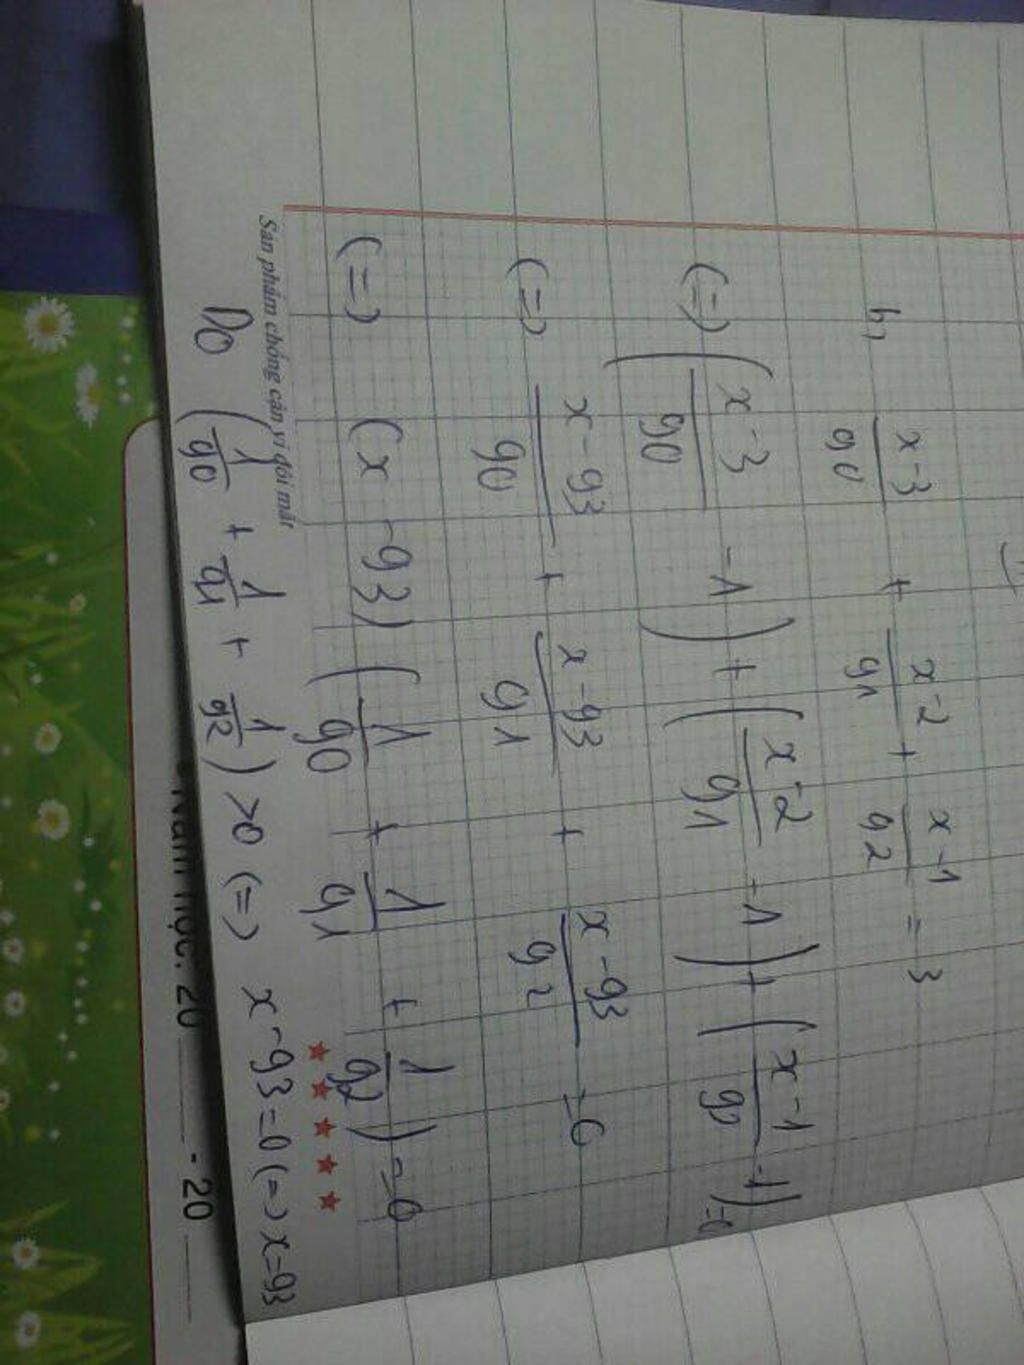 b, \frac{x-3}{90} + \frac{x-2}{91} + \frac{x-1}{92} = 3
(=) (\frac{x-3}{90} -1) + (\frac{x-2}{91} -1) + (\frac{x-1}{92} -1) =0
(=) \frac{x-93}{90} + \frac{x-93}{91} + \frac{x-93}{92} =0
(=) (x-93) (\frac{1}{90} + \frac{1}{91} + \frac{1}{92}) =0
Sản phẩm chống cận vì đôi mắt
★ ★ ★ ★ ★
Do (\frac{1}{90} + \frac{1}{91} + \frac{1}{92}) >0 (=) x-93=0 (=) x=93
Năm học: 20 - 20